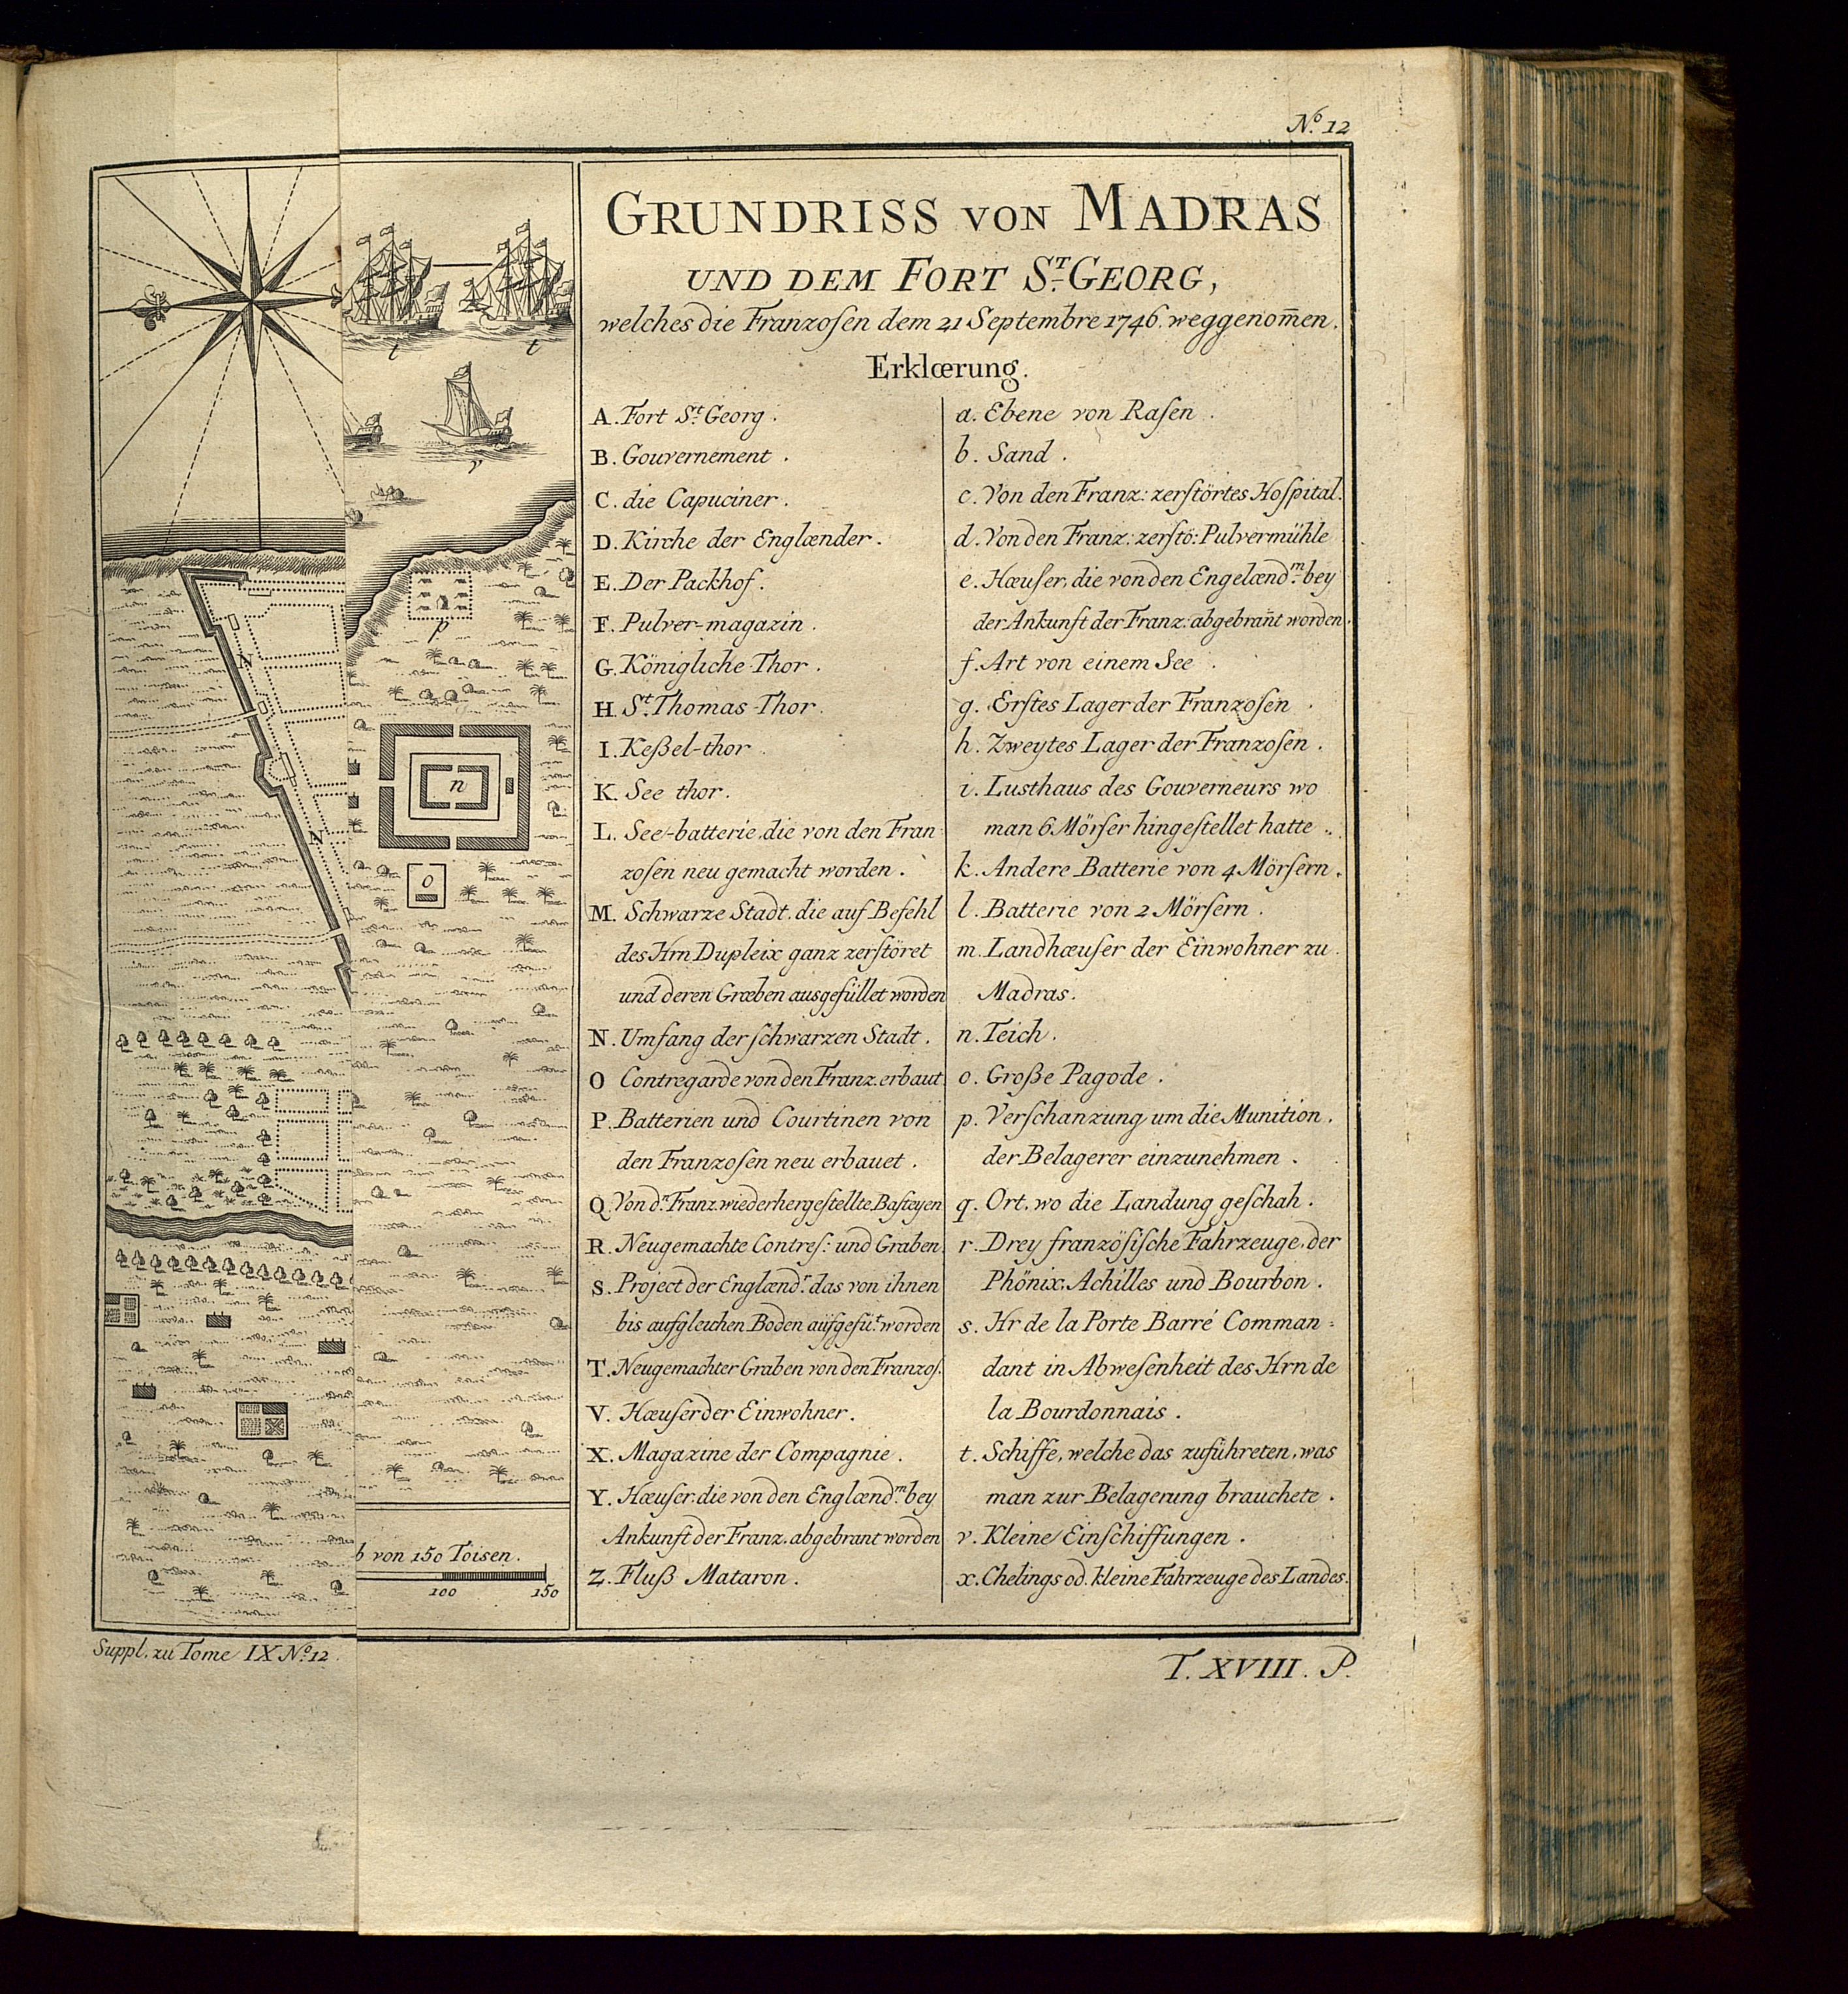 Nº. 12
GRUNDRISS VON MADRAS
UND DEM FORT ST. GEORG,
welches die Franzosen dem 21 Septembre 1746. weggenom̅en.
Erklœrung.
A. Fort St. Georg.
B. Gouvernement.
C. die Capuciner.
D. Kirche der Englœnder.
E. Der Packhof.
F. Pulver-magazin.
G. Königliche Thor.
H. St. Thomas Thor.
I. Keßel-thor.
K. See thor.
L. See-batterie, die von den Fran
zosen neu gemacht worden.
M. Schwarze Stadt, die auf Befehl
des Hrn Dupleix ganz zerstöret
und deren Grœben ausgefüllet worden
N. Umfang der schwarzen Stadt.
O Contregarde von den Franz. erbaut
P. Batterien und Courtinen von
den Franzosen neu erbauet.
Q. Von dn. Franz. wiederhergestellte Basteyen
R. Neugemachte Contres: und Graben
S. Project der Englœndr. das von ihnen
bis auf gleichen Boden aufgefüt worden
T. Neugemachter Graben von den Franzos.
V. Hœuser der Einwohner.
X. Magazine der Compagnie.
Y. Hœuser, die von den Englœndm. bey
Ankunft der Franz. abgebrant worden
Z. Fluß Mataron.
a. Ebene von Rasen.
b. Sand.
c. Von den Franz: zerstörtes Hospital.
d. Von den Franz: zerstö: Pulvermühle
e. Hœuser, die von den Engelœndm. bey
der Ankunft der Franz: abgebran̅t worden.
f. Art von einem See.
g. Erstes Lager der Franzosen.
h. Zweytes Lager der Franzosen.
i. Lusthaus des Gouverneurs wo
man 6 Mörser hingestellet hatte.
k. Andere Batterie von 4 Mörsern.
l. Batterie von 2 Mörsern.
m. Landhœuser der Einwohner zu
Madras.
n. Teich.
o. Große Pagode.
p. Verschanzung um die Munition.
der Belagerer einzunehmen.
q. Ort, wo die Landung geschah.
r. Drey französische Fahrzeuge, der
Phönix, Achilles und Bourbon.
s. Hr de la Porte Barré Comman=
dant in Abwesenheit des Hrn de
la Bourdonnais.
t. Schiffe, welche das zuführeten, was
man zur Belagerung brauchete.
v. Kleine Einschiffungen.
x. Chelings od. kleine Fahrzeuge des Landes.
t t
v
p
N
n
N
o
b von 150 Toisen.
100 150
Suppl. zu Tome IX Nº. 12.
T. XVIII. P.